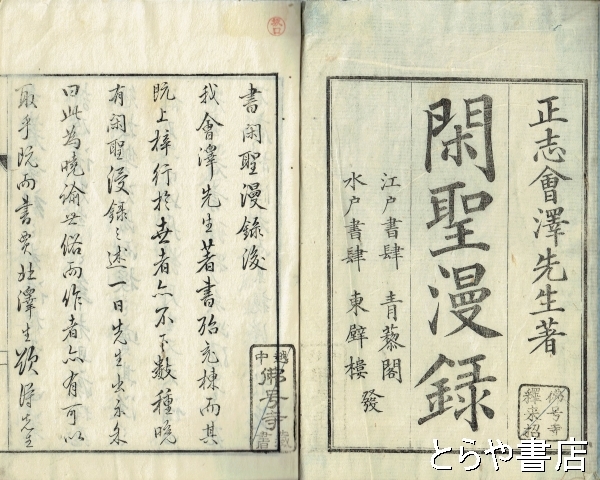 正志會澤先生著
閑聖漫録
江戸書肆 青藜閣
水戸書肆 東壁樓 發
書閑聖漫録後
我會澤先生著書殆充棟而其
既上梓行於世者亦不下數種晩
有閑聖漫録之述一日先生出示余
曰此為曉諭世俗而作者亦有可以
取乎既而書賈北澤生欲得先生
とらや書店